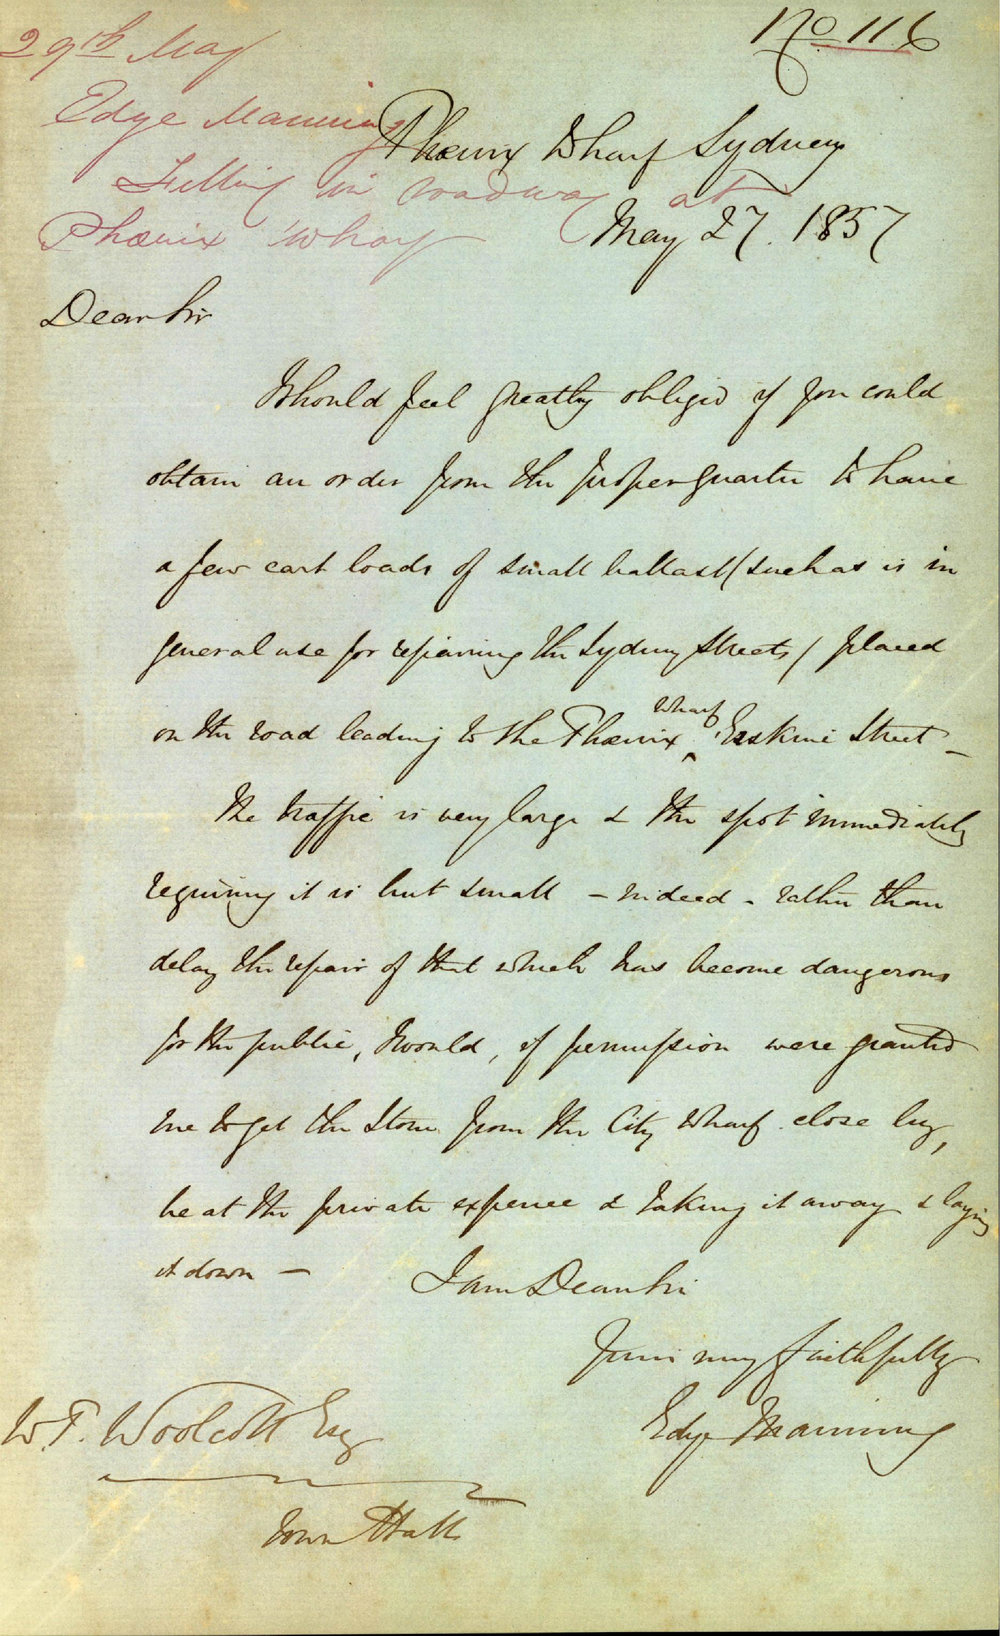 No 116
29th May
Edge Manning
Filling in roadway at
Phœnix Wharf
Phœnix Wharf Sydney
May 27. 1857
Dear Sir
I should feel greatly obliged if you could
obtain an order from the proper quarter to have
a few cart loads of small ballast (such as is in
general use for repairing the Sydney Streets) placed
on the road leading to the Phœnix Wharf, Erskine Street –
The traffic is very large & the spot immediately
requiring it is but small – indeed – rather than
delay the repair of that which has become dangerous
for the public, I would, if permission were granted
me to get the Stone from the City Wharf close by,
be at the private expence & taking it away & laying
it down –
I am Dear Sir
Yours very faithfully
Edge Manning
W. F. Woolcott Esq
Town Hall